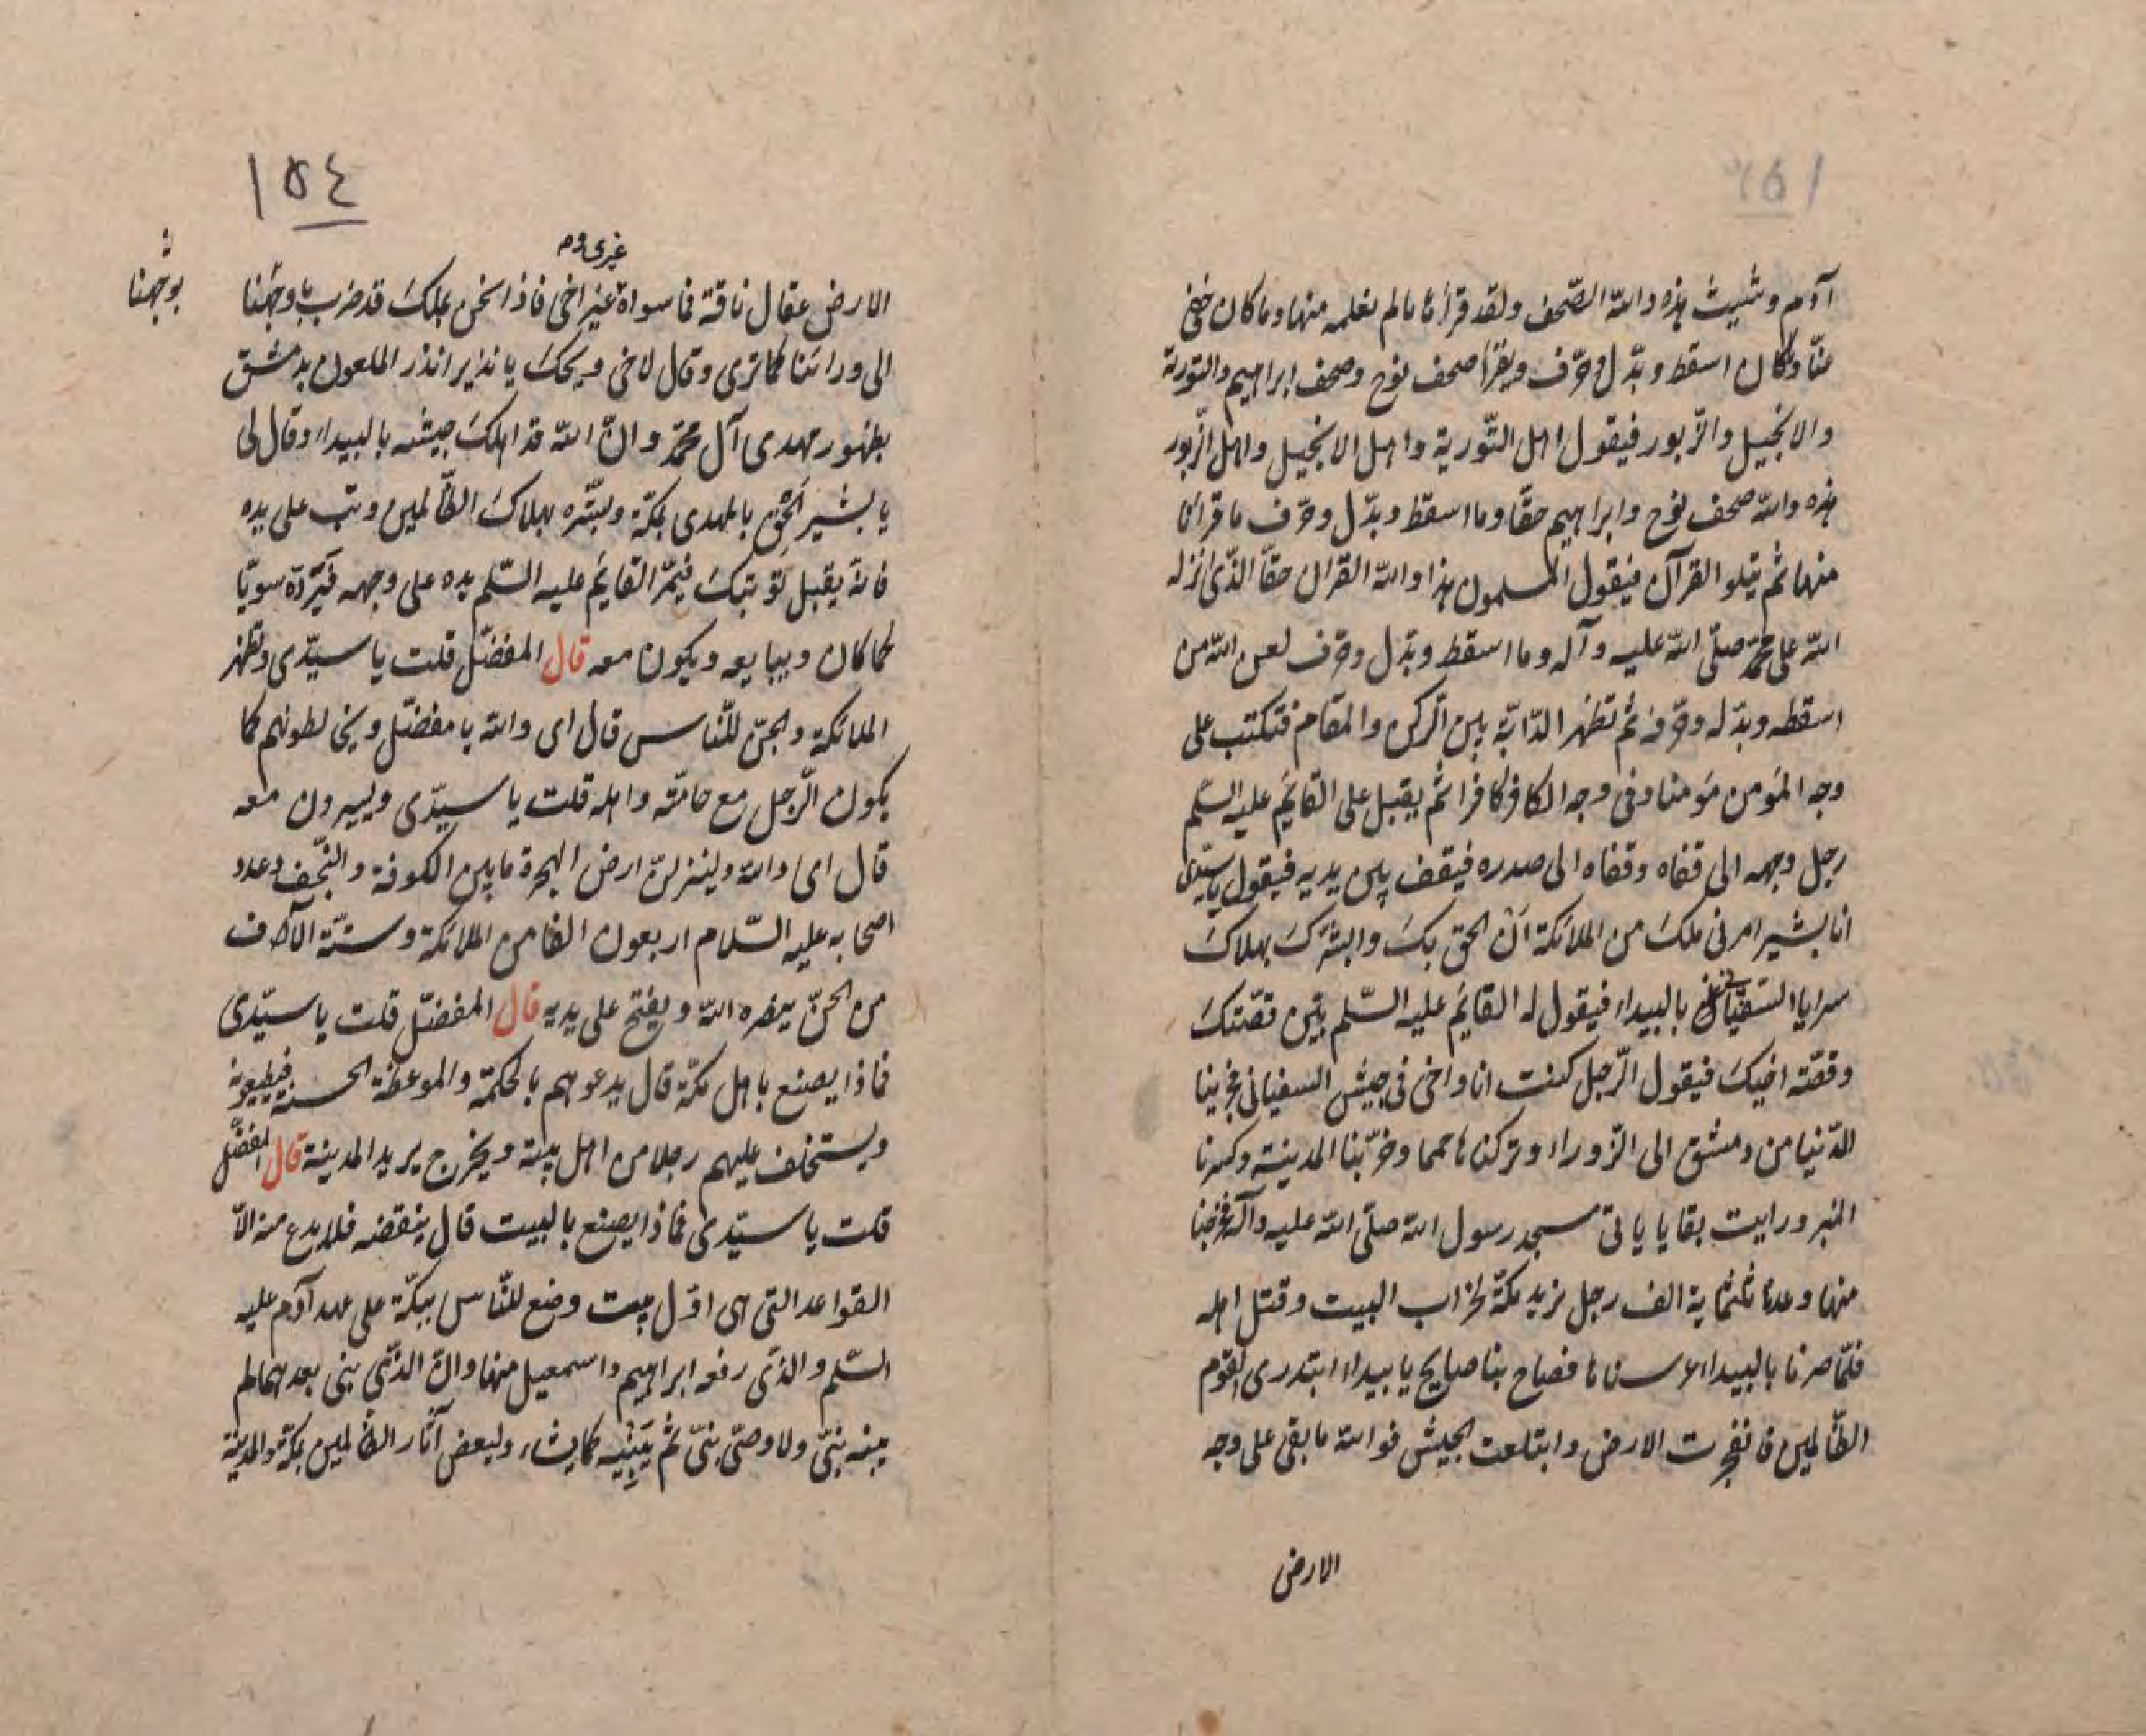 ١٥٣
آدم وشيث هذه والله الصّحف ولقد قرأنا مالم نعلمه منها وما كان خفي
عنّا وكان اسقط وبدّل وحرّف ويقرأ صحف نوح وصحف ابراهيم والتورية
والانجيل والزّبور فيقول اهل التّورية واهل الانجيل واهل الزّبور
هذه والله صحف نوح وابراهيم حقّا وما اسقط وبدّل وحرّف ما قرأنا
منها ثم يتلو القرآن فيقول المسلمون هذا والله القران حقّا الذّى انزله
الله على محمّد صلّى الله عليه وآله وما اسقط وبدّل وحرّف لعن الله من
اسقطه وبدّله وحرّفه ثم تظهر الدّابّة بين الرّكن والمقام فتكتب على
وجه المؤمن مؤمنا وفى وجه الكافر كافرا ثم يقبل على القائم عليه السّلم
رجل وجهه الى قفاه وقفاه الى صدره فيقف بين يديه فيقول يا سيّدى
انا بشير امرنى ملك من الملائكة ان الحق بك وابشّرك بهلاك
سرايا السّفيانى بالبيداء فيقول له القائم عليه السّلم بيّن قصّتك
وقصّة اخيك فيقول الرّجل كنت انا واخى فى جيش السفيانى فخربنا
الدّنيا من دمشق الى الزّوراء وتركناها حمما وخرّبنا المدينة وكسرنا
المنبر ورايت بقايا ياتى مسجد رسول الله صلّى الله عليه وآله فخرجنا
منها وعدنا ثلثماية الف رجل نريد مكّة لخراب البيت وقتل اهله
فلمّا صرنا بالبيداء عرسنا بها فصاح بنا صايح يا بيداء ابتدرى القوم
الظّالمين فانفجرت الارض وابتلعت الجيش فوالله ما بقى على وجه
الارض
١٥٤
غيرى وم
الارض عقال ناقة فما سواه غير اخى فاذا نحن بملك قد ضرب باوجهنا
بوجهنا
الى ورائنا كما ترى وقال لاخى ويحك يا نذير انذر الملعون بدمشق
بظهور مهدى آل محمّد وانّ الله قد اهلك جيشه بالبيداء وقال لى
يا بشير الحق بالمهدى بمكّة وبشّره بهلاك الظّالمين وتب على يده
فانه يقبل توبتك فيمرّ القائم عليه السّلم يده على وجهه فيردّه سويّا
كما كان ويبايعه ويكون معه قال المفضّل قلت يا سيّدى وتظهر
الملائكة والجنّ للنّاس قال اى والله يا مفضّل ويخالطونهم كما
يكون الرّجل مع حامّته واهله قلت يا سيّدى ويسيرون معه
قال اى والله ولينزلنّ ارض الهجرة ما بين الكوفة والنّجف وعدد
اصحابه عليه السّلام اربعون الفا من الملائكة وستّة الآف
من الجنّ ينصره الله ويفتح على يديه قال المفضّل قلت يا سيّدى
فماذا يصنع باهل مكّة قال يدعوهم بالحكمة والموعظة الحسنة فيطيعونه
ويستخلف عليهم رجلا من اهل بيته ويخرج يريد المدينة قال المفضّل
قلت يا سيّدى فماذا يصنع بالبيت قال ينقضه فلا يدع منه الاّ
القواعد التى هى اوّل بيت وضع للنّاس ببكّة على عهد آدم عليه
السّلم والذى رفعه ابراهيم واسمعيل منها وانّ الذّى بنى بعدهما لم
يبنه نبىّ ولا وصىّ نبىّ ثم يبنيه كما يشاء وليعفن آثار الظّالمين بمكّة والمدينة